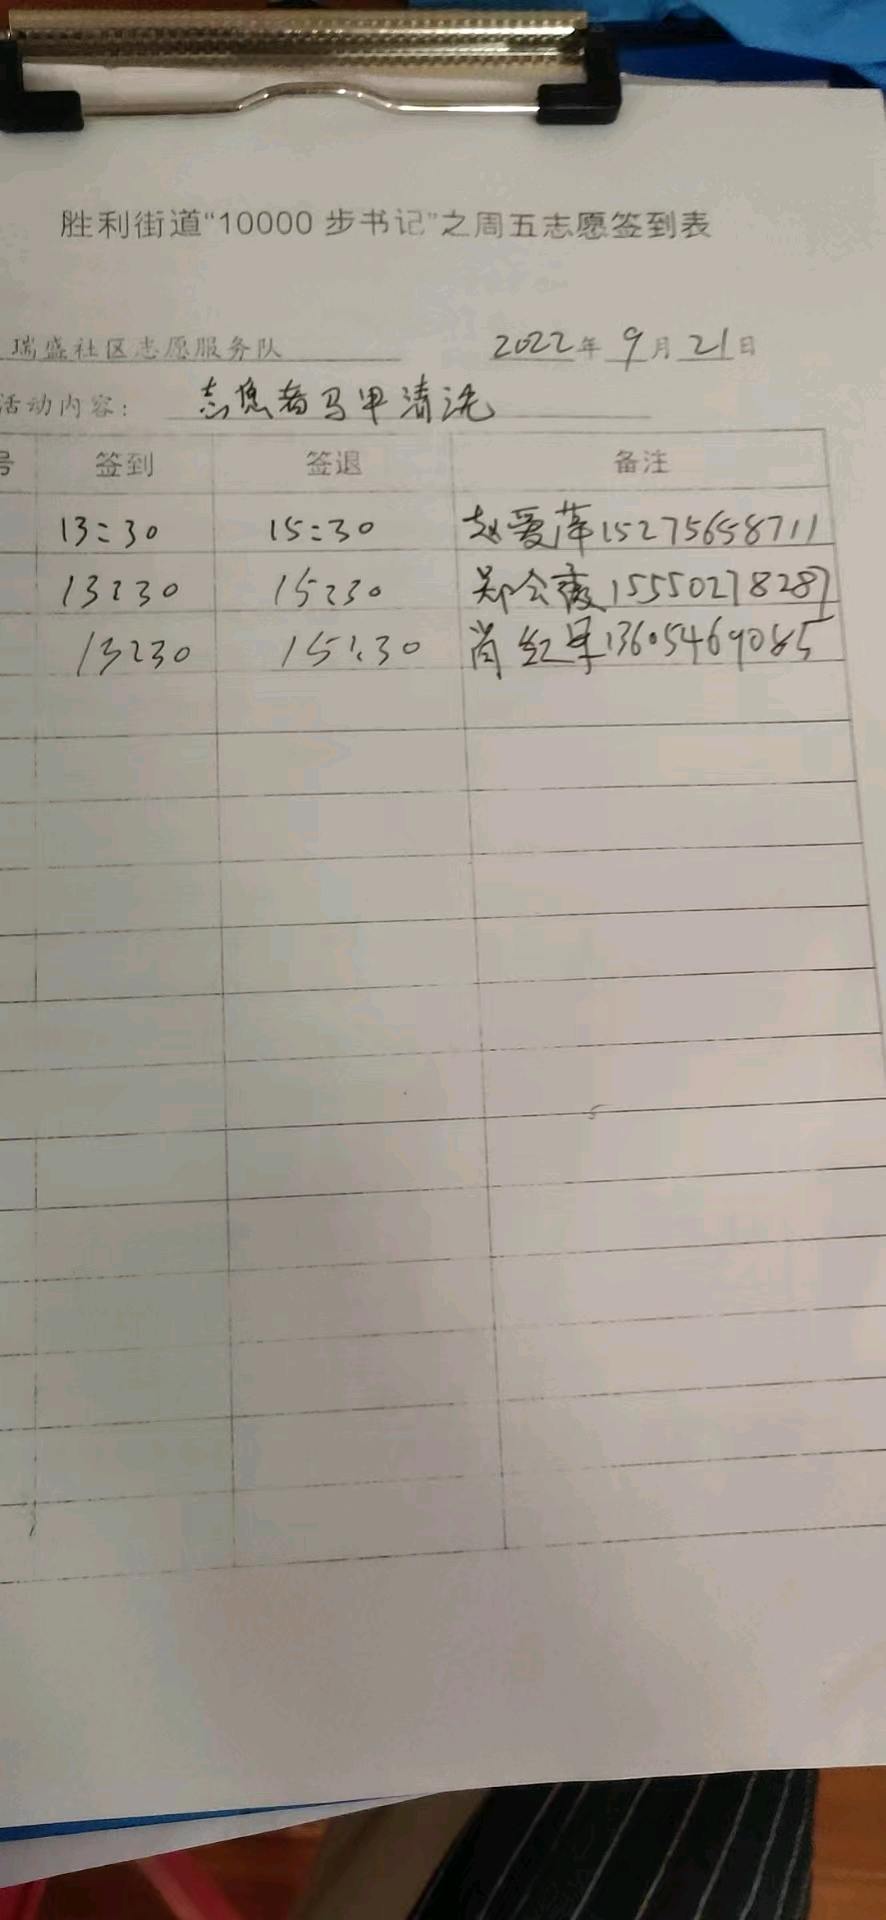 胜利街道“10000 步书记”之周五志愿签到表
瑞盛社区志愿服务队 2022年 9月 21日
活动内容: 志愿者马甲清洗
号 签到 签退 备注
13:30 15:30 赵爱萍15275658711
13:30 15:30 郑会霞15550278287
13:30 15:30 肖红军13605469085